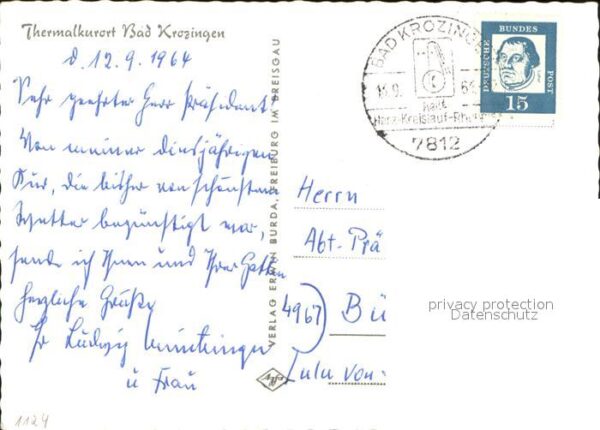 Thermalkurort Bad Krozingen
d. 12.9.1964
Sehr geehrter Herr Präsident!
Von meiner diesjährigen
Kur, die bisher von schönstem
Wetter begünstigt war,
sende ich Ihnen und Ihrer Gattin
herzliche Grüße
Ihr Ludwig
u Frau
VERLAG ERWIN BURDA, FREIBURG IM BREISGAU
BAD KROZINGEN
heilt
Herz-Kreislauf-Rheuma
7812
DEUTSCHE BUNDESPOST
15
Herrn
Abt.-Prä
4967) Bü
Lulu von-
privacy protection
Datenschutz
1124